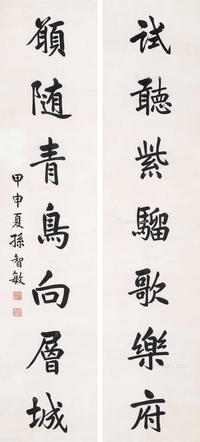 試聽紫騮歌樂府
願随青鳥向層城
甲申夏孫智敏